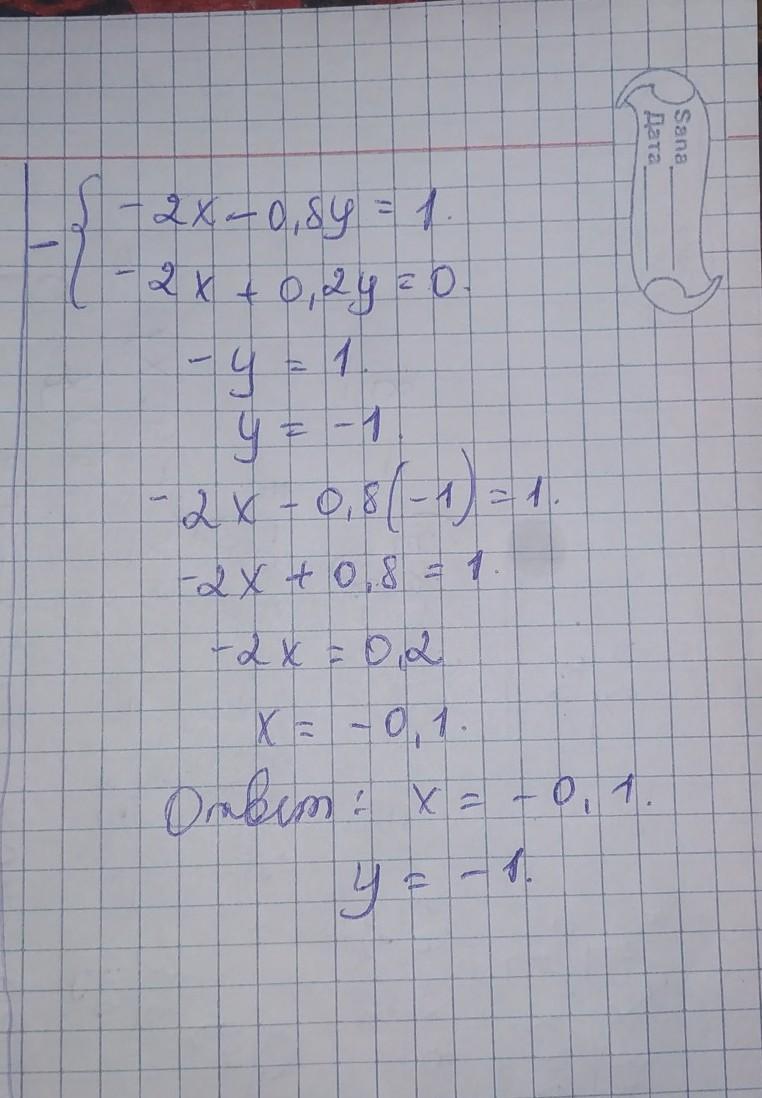 Sana
Дата
- { -2x - 0,8y = 1.
-2x + 0,2y = 0.
-y = 1.
y = -1.
-2x - 0,8(-1) = 1.
-2x + 0,8 = 1.
-2x = 0,2
x = -0,1.
Ответ: x = -0,1.
y = -1.